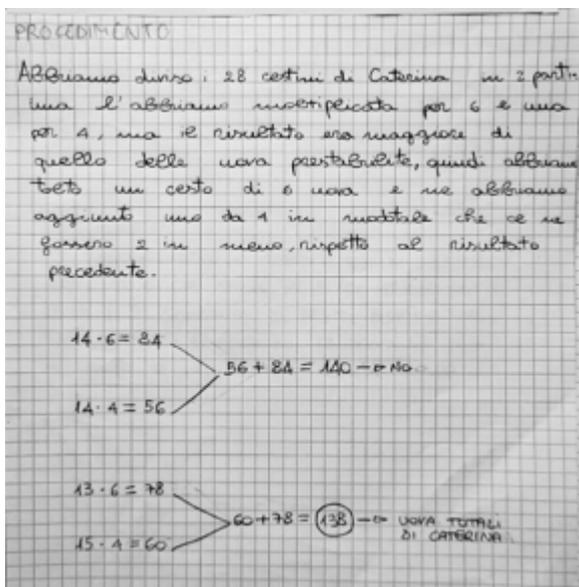 PROCEDIMENTO
Abbiamo diviso i 28 cestini di Caterina in 2 parti:
una l'abbiamo moltiplicata per 6 e una
per 4, ma il risultato era maggiore di
quello delle uova prestabilite, quindi abbiamo
tolto un cesto di 6 uova e ne abbiamo
aggiunto uno da 4 in modo tale che ce ne
fossero 2 in meno, rispetto al risultato
precedente.
14 · 6 = 84
56 + 84 = 140 → NO
14 · 4 = 56
13 · 6 = 78
60 + 78 = 138 → UOVA TOTALI
DI CATERINA
15 · 4 = 60